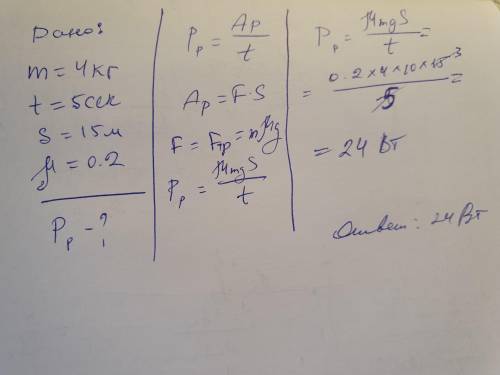 Дано:
m = 4 кг
t = 5 сек
S = 15 м
μ = 0.2
Pр - ?
Pр = Aр / t
Aр = F · S
F = Fтр = mμg
Pр = μmgS / t
Pр = μmgS / t =
= 0.2 × 4 × 10 × 15 3 / 5 =
= 24 Вт
Ответ: 24 Вт